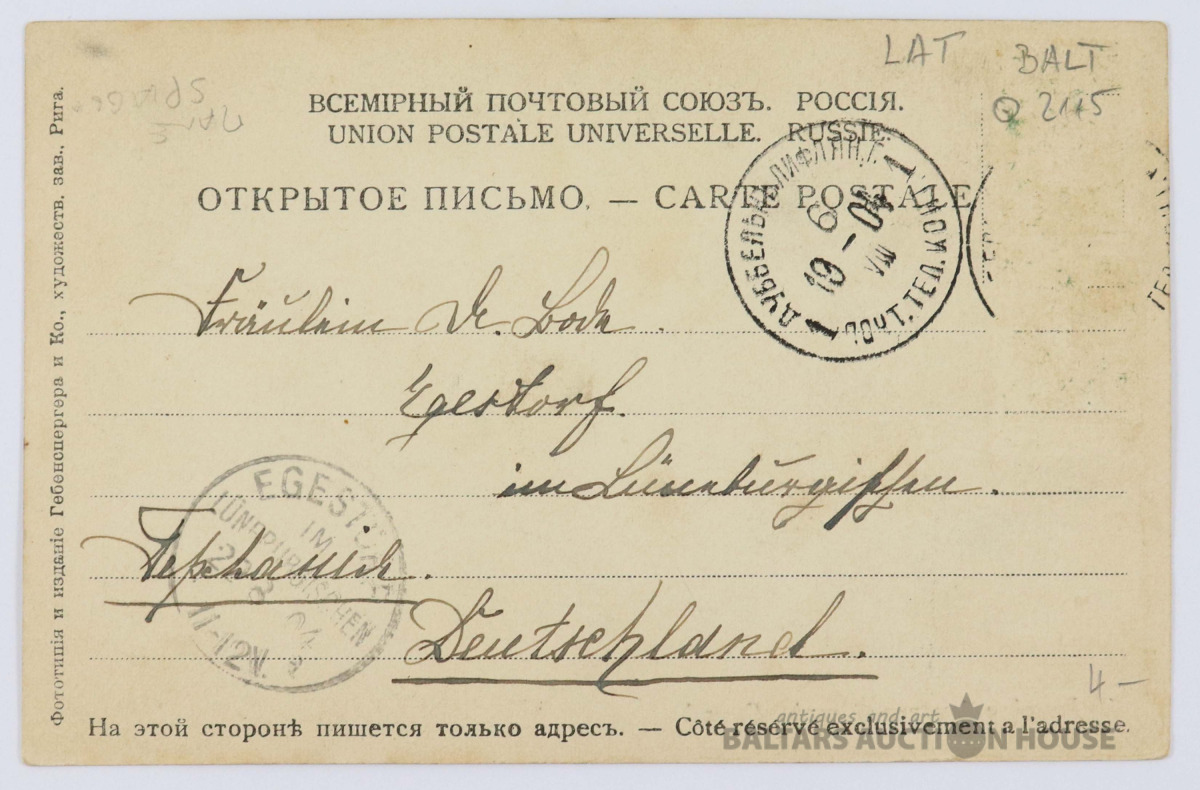 LAT BALT
Q 2115
ВСЕМІРНЫЙ ПОЧТОВЫЙ СОЮЗЪ. РОССІЯ.
UNION POSTALE UNIVERSELLE. RUSSIE.
ОТКРЫТОЕ ПИСЬМО. — CARTE POSTALE
ДУББЕЛЬНЪ ЛИФЛЯН. Г.
1
6
19 – 04
VIII
1
ПОЧТ. ТЕЛ. КОН.
Fräulein de Bode.
Egestorf.
im Lüneburgischen.
Германия.
Deutschland.
EGESTORF
IM
LÜNEBURGISCHEN
8 04
11-12V.
Фототипія и изданіе Гебенспергера и Ко., художеств. зав., Рига.
4 —
На этой сторонѣ пишется только адресъ. — Côté réservé exclusivement a l'adresse.
antiques and art
BALTARS AUCTION HOUSE